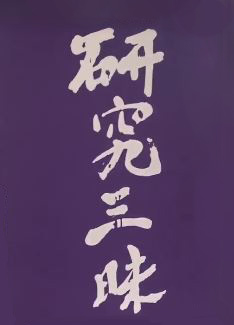 研究三昧